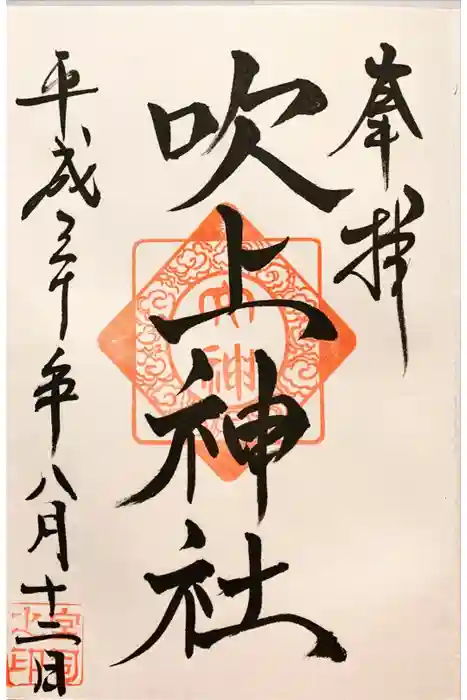 奉拝
吹上神社
平成三十年八月十二日